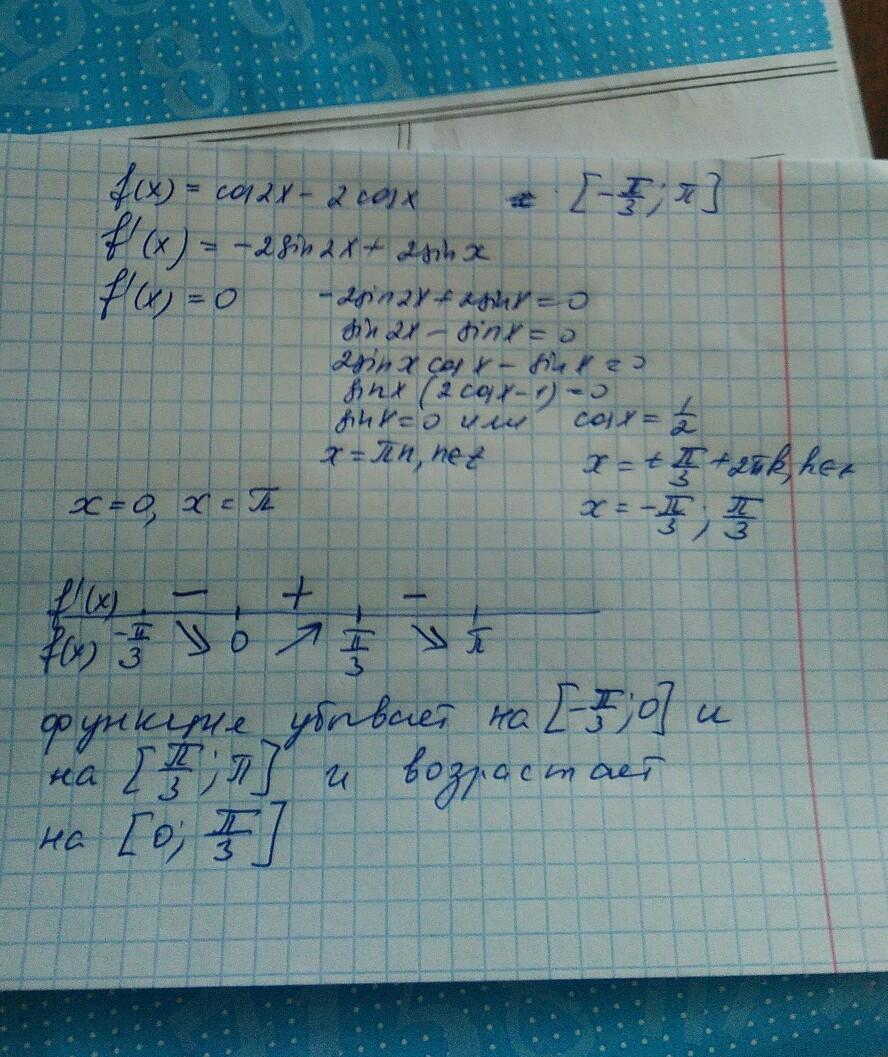 f(x) = cos2x - 2cosx [-π/3; π]
f'(x) = -2sin2x + 2sinx
f'(x) = 0 -2sin2x + 2sinx = 0
sin2x - sinx = 0
2sinxcosx - sinx = 0
sinx(2cosx-1) = 0
sinx = 0 или cosx = 1/2
x = πn, n∈z x = ± π/3 + 2πk, k∈z
x = 0, x = π x = -π/3; π/3
f'(x) - + -
f(x) -π/3 ↘ 0 ↗ π/3 ↘ π
функция убывает на [-π/3; 0] и
на [π/3; π] и возрастает
на [0; π/3]